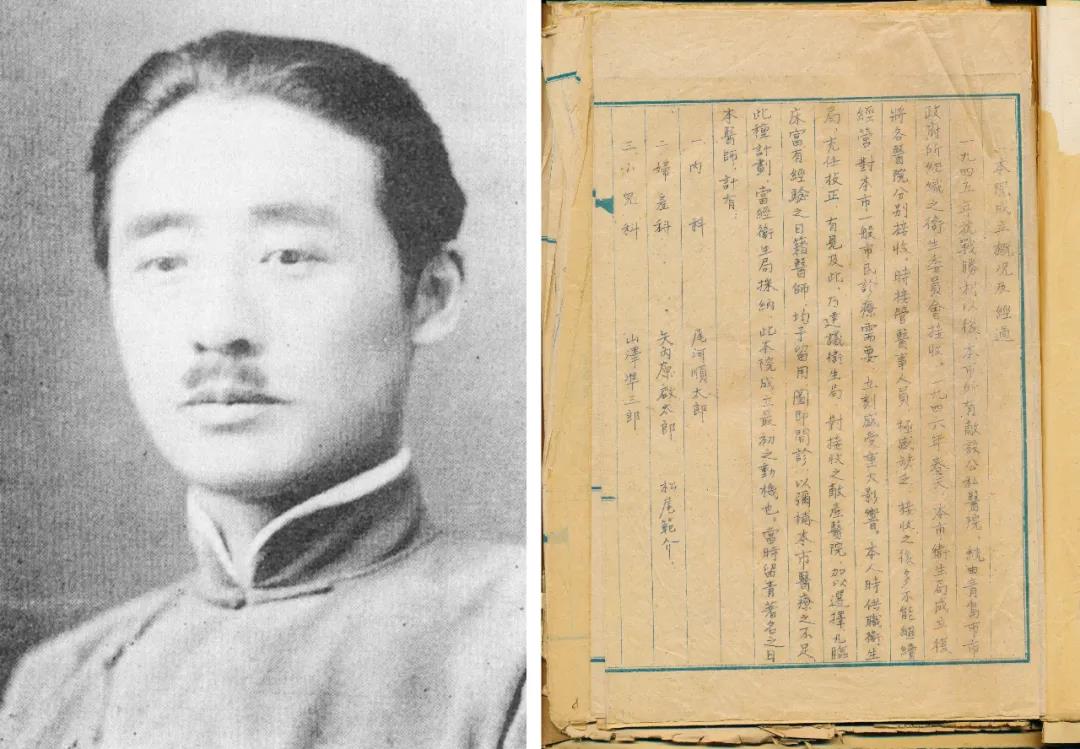 一 本院成立概況及經過
一九四五年抗戰勝利以後、本市所有敵設公私醫院、統由青島市市
政府所組織之衛生委員會接收。一九四六年春天、本市衛生局成立後
將各醫院分別接收。時接管醫事人員極感缺乏、接收之後多不能繼續
經營、對本市一般市民診療需要、立刻感受重大影響。本人時供職衛生
局、充任技正、有見及此、乃建議衛生局、對接收之敵產醫院、加以選擇、凡臨
床富有經驗之日籍醫師、均予留用、圖即開診、以彌補本市醫療之不足
此種計劃、當經衛生局採納、此本院成立最初之動機也。當時留青著名之日
本醫師、計有：
一 內 科 尾河順太郎
二 婦產科 矢內原啟太郎 松尾範介
三 小兒科 山澤準三郎